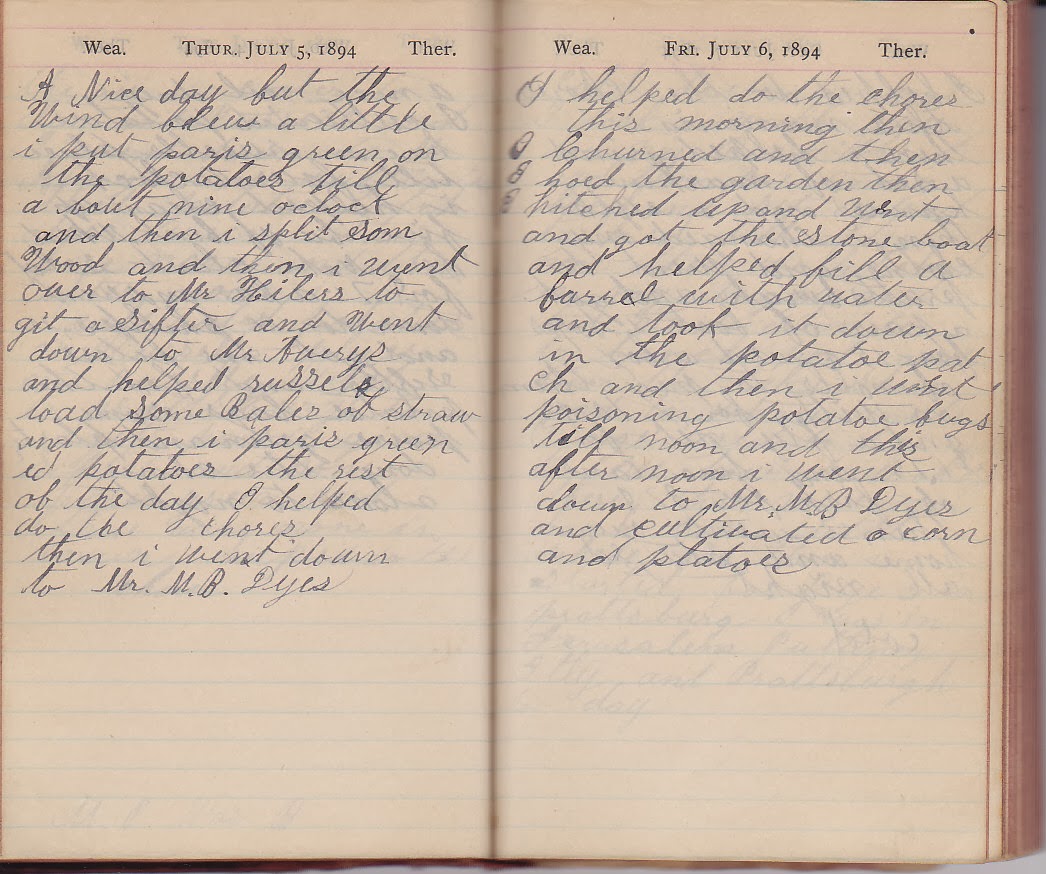 Wea. THUR. JULY 5, 1894 Ther.
A Nice day but the
Wind blew a little
i put paris green on
the potatoes till
a bout nine oclock
and then i split som
Wood and then i went
over to Mr Hilers to
git a sifter and Went
down to Mr Averys
and helped russel
load some Bales of straw
and then i paris green
ed potatoes the rest
of the day I helped
do the chores
then i went down
to Mr. M.B. Dyes
Wea. FRI. JULY 6, 1894 Ther.
I helped do the chores
this morning then
Churned and then
hoed the garden then
hitched up and Went
and got the stone boat
and helped fill a
barrel with water
and took it down
in the potatoe pat
ch and then i went
poisoning potatoe bugs
till noon and this
after noon i went
down to Mr. M.B Dyes
and cultivated corn
and ptatoes
Jerusalem
and Prattsburgh
day